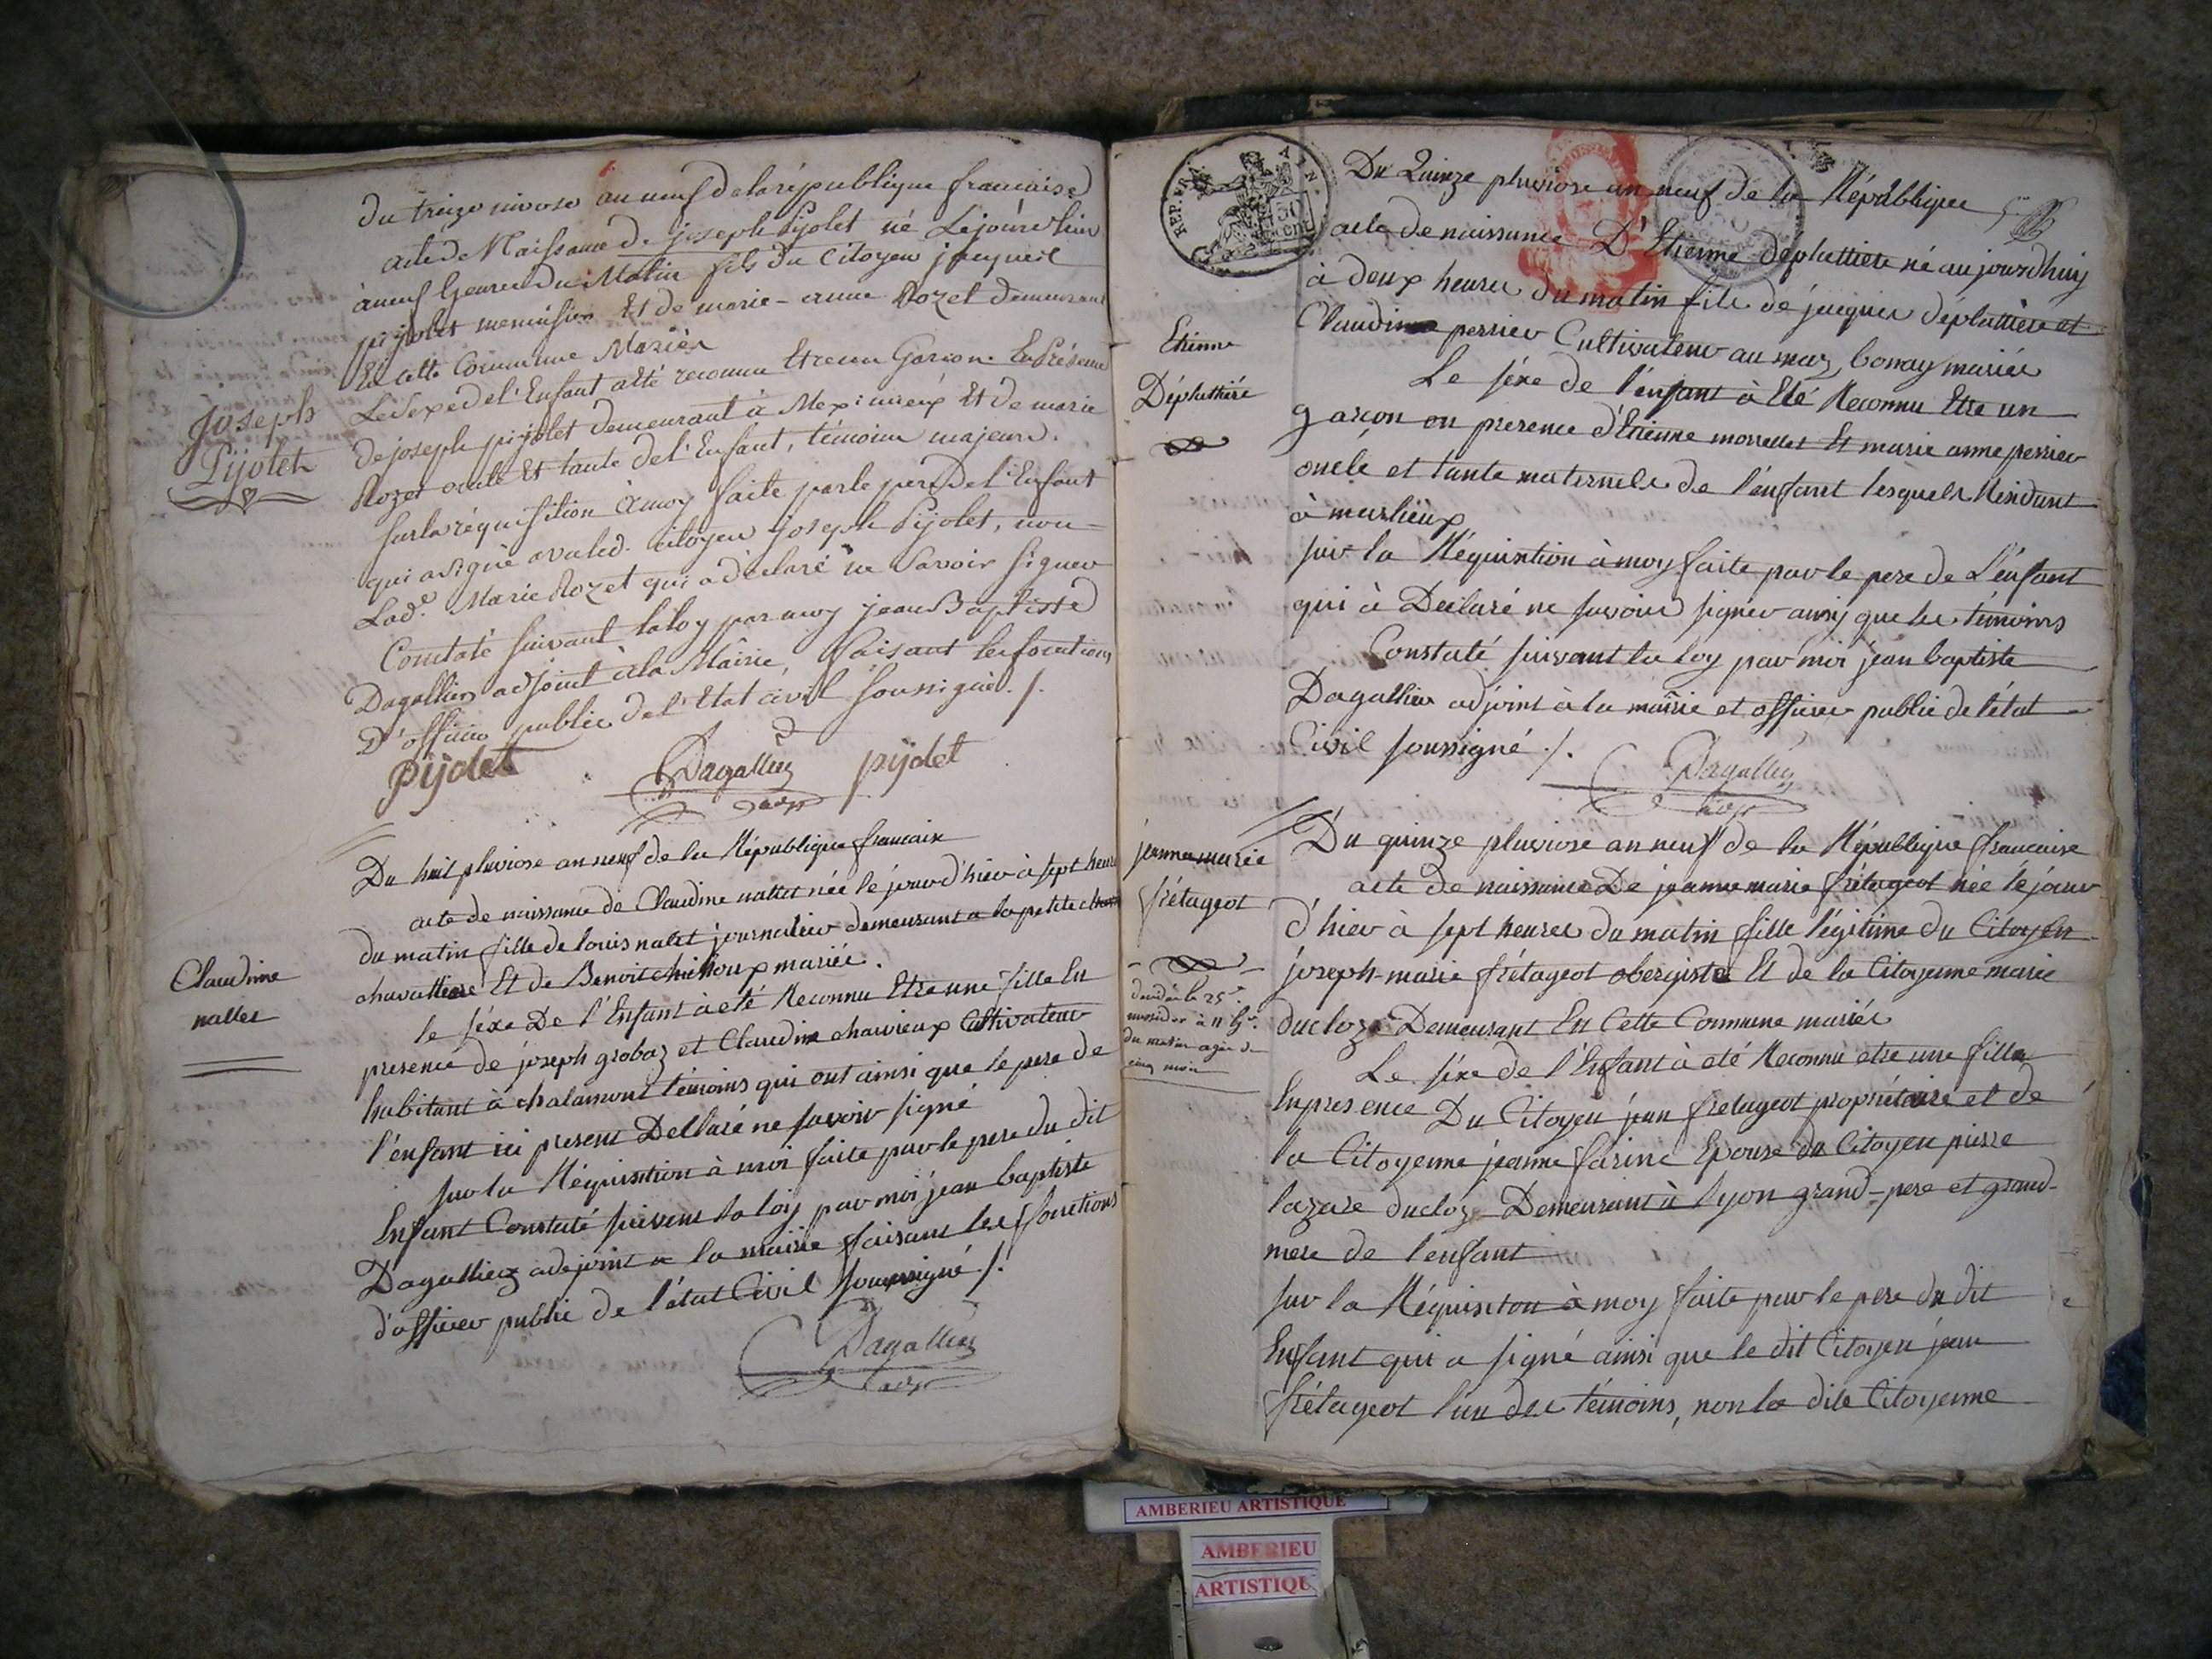 du treize nivose an neuf de la république francaise
acte de Naissance de joseph Pijolet né Le jour d'hier
à neuf heures du Matin fils du Citoyen jacques
pijolet menuisier Et de marie-anne Rozet demeurant
En cette Commune Mariés
Le Sexe de l'Enfant a été reconnu Etre un Garcon. En Présence
de joseph pijolet demeurant à Meximieux Et de marie
Rozet oncle Et tante de l'Enfant, témoins majeurs.
Joseph
Pijolet
Sur la réquisition à moy faite par le pere de l'Enfant
qui a signé avec led. citoyen joseph Pijolet, non-
Lad.e Marie Rozet qui a déclaré ne Savoir signer
Constaté suivant la loy par moy jean Baptiste
Dagallier adjoint à la Mairie, faisant les fonctions
D'officier public de l'Etat civil soussigné ./.
pijolet Dagallier adj. pijolet
Du huit pluviose an neuf de la République francaise
acte de naissance de Claudine nallet née le jour d'hier à sept heures
du matin fille de louis nalet journalier demeurant a la petite
chavalliere Et de Benoit mariés.
Claudine
nallet
le séxe De l'Enfant à eté Reconnu Etre une fille En
presence de joseph grobaz et Claudine charvieux Cultivateur
habitant à chalamont témoins qui ont ainsi que le pere de
l'enfant ici present Dellaré ne savoir signé
sur la Réquisition à moi faite par le pere du dit
Enfant Constaté suivent la loy par moi jean baptiste
Dagallier adejoint a la mairie faisant les fonctions
d'officier public de l'état Civil soussigné ./.
Dagallier adj.
REP. FRA. AIN.
50 cent
Du Quinze pluviose an neuf de la République
acte de naissance D'Etienne déplattiere né aujourdhuy
à deux heures du matin fils de jacques déplattière et
Claudine perrier Cultivateur au maz bonay mariés
Etienne
Déplattiére
Le séxe de l'énfant à Eté Reconnu Etre un
garçon en presence d'Etienne morrellet Et marie anne perrier
oncle et tante maternels de l'enfant lesquels Résidant
à marlieux
sur la Réquisition à moy faite par le pere de L'énfant
qui à Déclaré ne savoir signér ainsy que les témoins
Constaté suivant la loy par moi jean baptiste
Dagallier adjoint à la mairie et officier public de l'état
Civil soussigné ./.
Dagallier adj.
jeanne marie
frétageot
Du quinze pluviose an neuf de la République francaise
acte de naissance De jeanne marie frétageot née le jour
d'hier à sept heures du matin fille légitime du Citoyen
joseph-marie frétageot obergiste Et de la Citoyenne marie
ducloz Demeurant En Cette Commune mariés
décédée le 25.e
messidor à 11 h.res
du matin agée de
cinq mois
Le séxe de l'Enfant à eté Reconnu etre une fille
En presence Du Citoyen jean fretageot propriétaire et de
la Citoyenne jéanne farine Epouse du Citoyen pierre
lazare ducloz Demeurant à Lyon grand-pere et grand-
mere de l'enfant
sur la Réquisiton à moy faite par le pere du dit
Enfant qui a signé ainsi que le dit Citoyen jean
frétageot l'un des témoins, non la dite Citoyenne
AMBERIEU ARTISTIQUE
AMBERIEU
ARTISTIQU